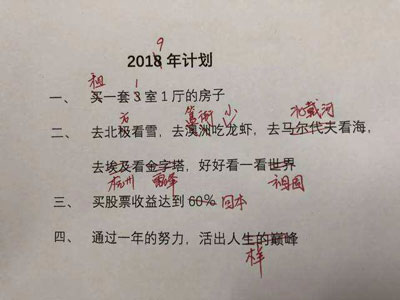 9
2018 年计划
租 1
一、 买一套 3 室 1 厅的房子
方 簋街 小 北戴河
二、 去北极看雪，去澳洲吃龙虾，去马尔代夫看海，
去埃及看金字塔，好好看一看世界
杭州 雷峰 祖国
三、 买股票收益达到 60% 回本
四、 通过一年的努力，活出人生的巅峰
样